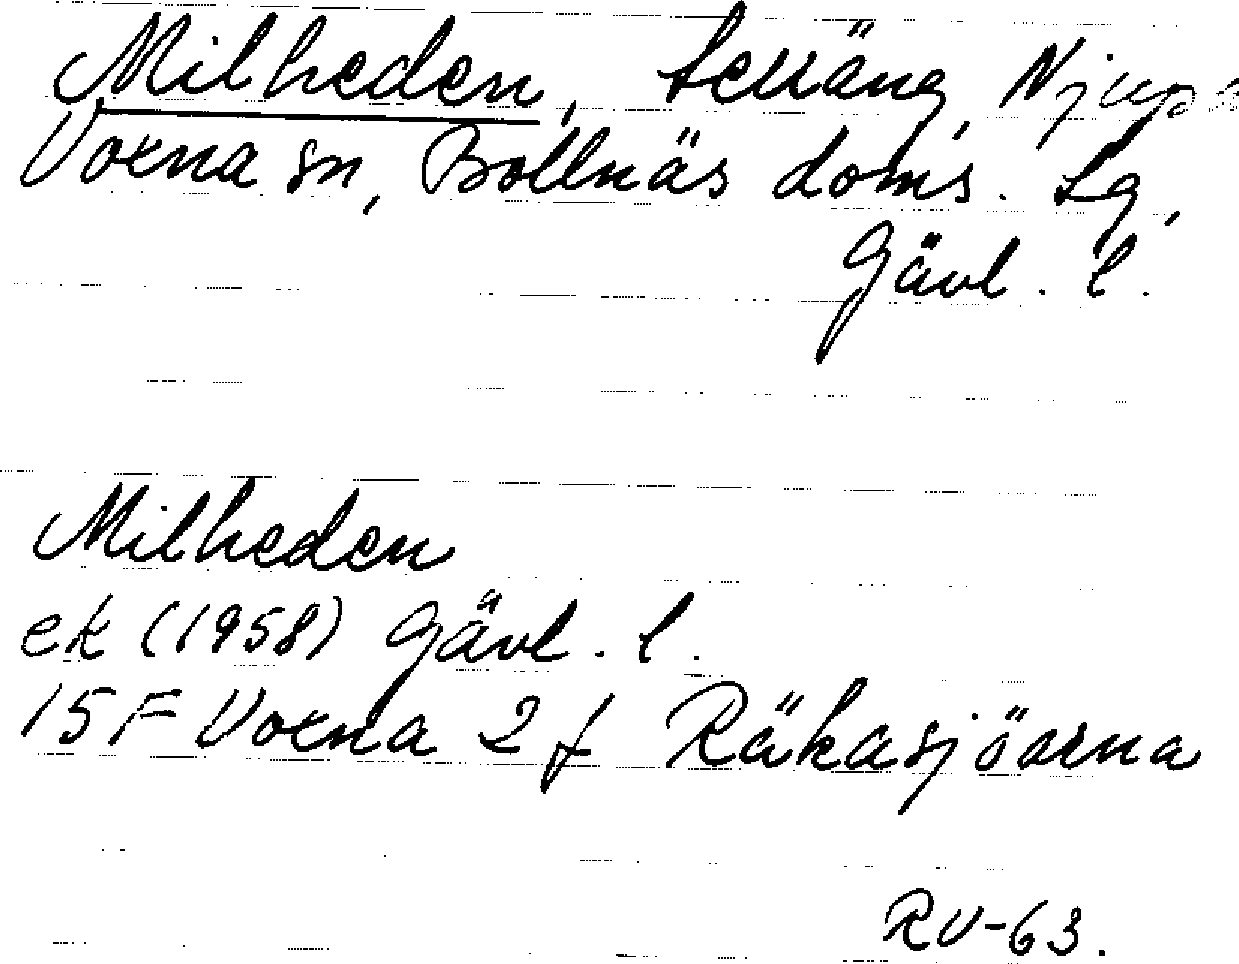 Milheden, terräng,
Voxna sn, Bollnäs doms. Lg,
Gävl. l.
Milheden
ek (1958) Gävl. l.
15F Voxna 2 f Räkasjöarna
RV-63.